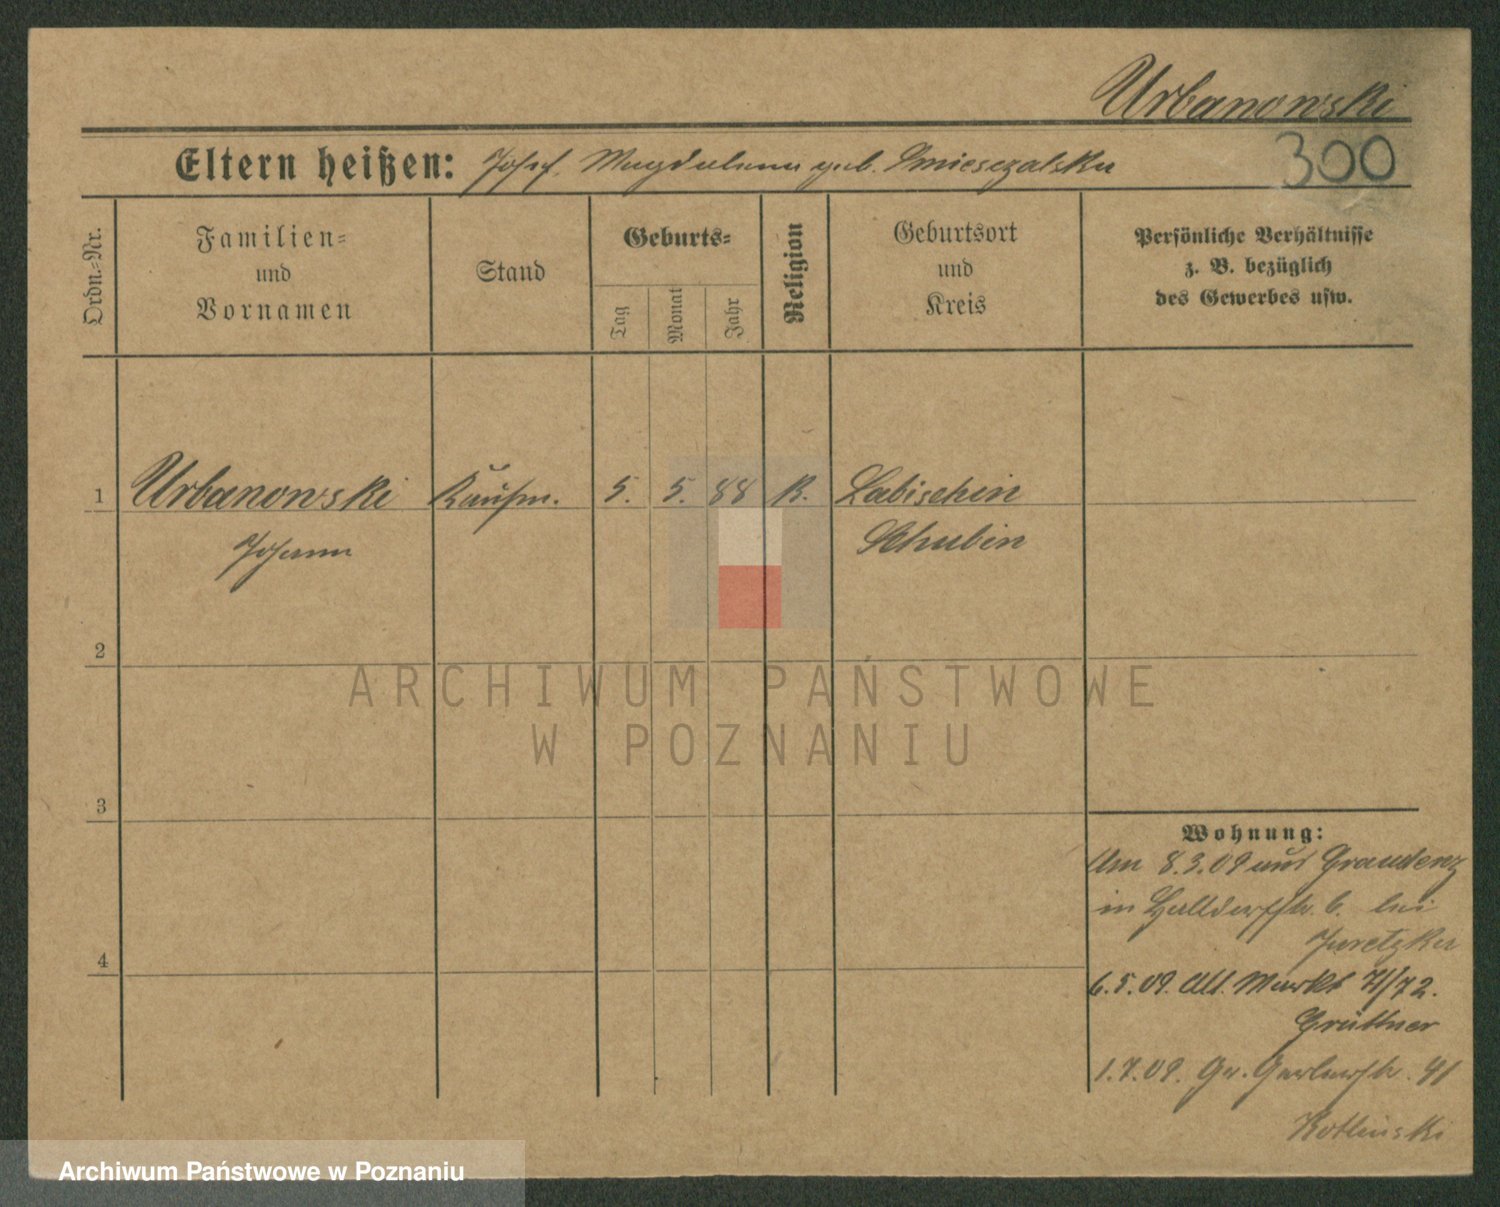 Urbanowski
300
Eltern heißen: Josef, Magdalena geb. Smieszalska
Ordn.-Nr.
Familien-
und
Vornamen
Stand
Geburts-
Tag
Monat
Jahr
Religion
Geburtsort
und
Kreis
Persönliche Verhältnisse
z. B. bezüglich
des Gewerbes usw.
1 Urbanowski Kaufm. 5. 5. 88 K. Labischin
Johann Schubin
2
ARCHIWUM PAŃSTWOWE
W POZNANIU
3
Wohnung:
Am 8.3.09 aus Graudenz
in Halldorfstr. 6. bei
Juretzka
4
6.5.09. Alt. Markt 71/72.
Grüttner
1.7.09. Gr. Gerberstr. 41
Kotlinski
Archiwum Państwowe w Poznaniu